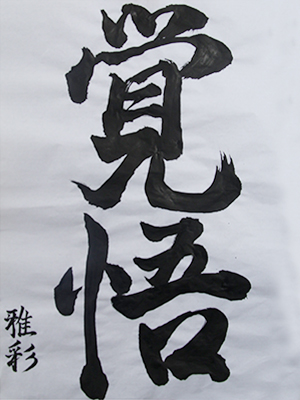 覚悟
雅彩